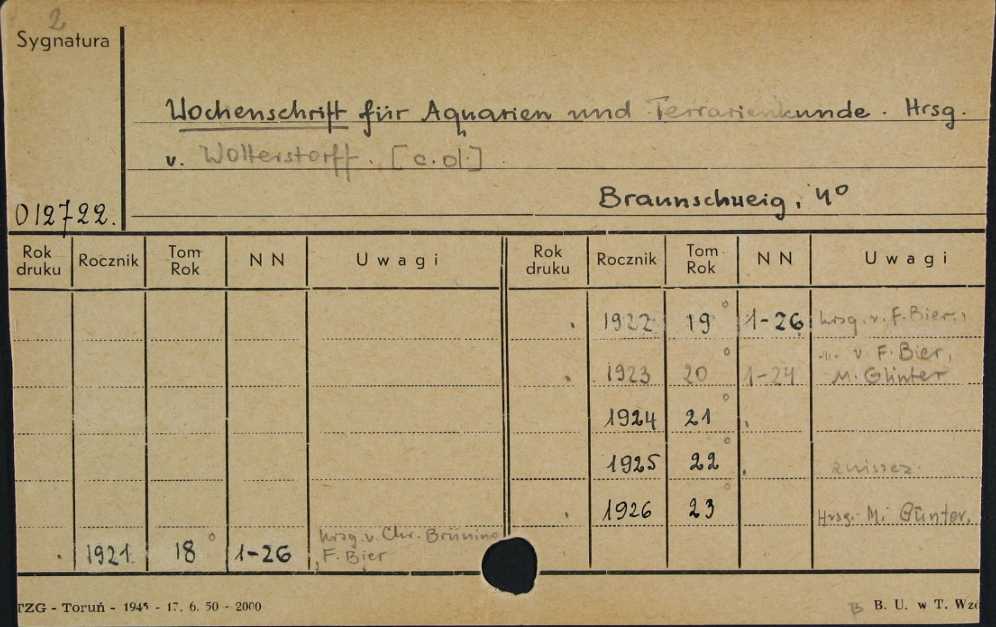 2
Sygnatura
Wochenschrift für Aquarien und Terrarienkunde. Hrsg.
v. Wolterstorff. [c.ol.]
012722.
Braunschweig, 4°
Rok druku Rocznik Tom Rok N N Uwagi Rok druku Rocznik Tom Rok N N Uwagi
1922 19° 1-26 hrsg. v. F. Bier.,
1923 20° 1-24 -"- v. F. Bier, M. Günter
1924 21°
1925 22° zniszcz.
1926 23° Hrsg. M. Günter.
1921. 18° 1-26 hrsg. v. Chr. Brüning, F. Bier
TZG - Toruń - 1945 - 17. 6. 50 - 2000
B B. U. w T. Wzó